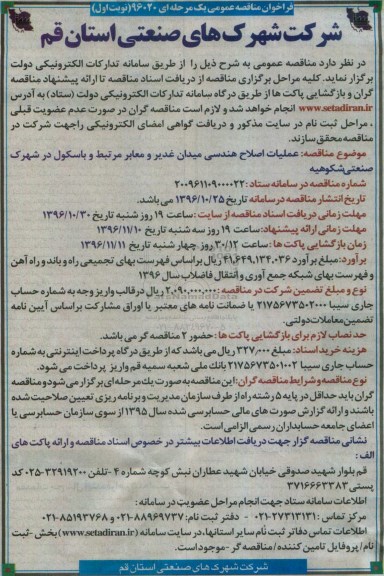 فراخوان مناقصه عمومی یک مرحله ای ۹۶۰۲۰ (نوبت اول)
شرکت شهرک های صنعتی استان قم
در نظر دارد مناقصه عمومی به شرح ذیل را از طریق سامانه تدارکات الکترونیکی دولت
برگزار نماید. کلیه مراحل برگزاری مناقصه از دریافت اسناد مناقصه تا ارائه پیشنهاد مناقصه
گران و بازگشایی پاکت ها از طریق درگاه سامانه تدارکات الکترونیکی دولت (ستاد) به آدرس
www.setadiran.ir انجام خواهد شد و لازم است مناقصه گران در صورت عدم عضویت قبلی
، مراحل ثبت نام در سایت مذکور و دریافت گواهی امضای الکترونیکی راجهت شرکت در
مناقصه محقق سازند.
موضوع مناقصه: عملیات اصلاح هندسی میدان غدیر و معابر مرتبط و باسکول در شهرک
صنعتی شکوهیه
شماره مناقصه در سامانه ستاد: ۲۰۰۹۶۱۱۰۹۰۰۰۰۲۲
تاریخ انتشار مناقصه در سامانه تاریخ ۱۳۹۶/۱۰/۲۵ می باشد.
مهلت زمانی دریافت اسناد مناقصه از سایت: ساعت ۱۹ روز شنبه تاریخ ۱۳۹۶/۱۰/۳۰
مهلت زمانی ارائه پیشنهاد: ساعت ۱۹ روز سه شنبه تاریخ ۱۳۹۶/۱۱/۱۰
زمان بازگشایی پاکت ها: ساعت ۱۲/۳۰ روز چهار شنبه تاریخ ۱۳۹۶/۱۱/۱۱
برآورد: مبلغ برآورد ۴۱,۶۴۹,۱۳۴,۰۳۶ ریال براساس فهرست بهای تجمیعی راه و باند و راه آهن
و فهرست بهای شبکه جمع آوری و انتقال فاضلاب سال ۱۳۹۶
نوع و مبلغ تضمین شرکت در مناقصه: ۲,۰۹۰,۰۰۰,۰۰۰ ریال در قالب واریز وجه به شماره حساب
جاری سیبا ۲۱۷۵۶۷۳۵۰۲۰۰۰ یا ضمانت نامه های معتبر یا اوراق مشارکت براساس آیین نامه
تضمین معاملات دولتی.
حد نصاب لازم برای بازگشایی پاکت ها: حضور ۲ مناقصه گر می باشد.
هزینه خرید اسناد: مبلغ ۳۲۷,۰۰۰ ریال می باشد که از طریق درگاه پرداخت اینترنتی به شماره
حساب جاری سیبا ۲۱۷۵۶۷۳۵۰۱۰۰۲ بانك ملی شعبه سمیه قم واریز پرداخت می شود.
نوع مناقصه و شرایط مناقصه گران: این مناقصه به صورت یك مرحله ای برگزار می شود و مناقصه
گران باید حداقل در پایه ۵ رشته راه از طرف سازمان مدیریت و برنامه ریزی تعیین صلاحیت شده
باشند و ارائه گزارش صورت های مالی حسابرسی شده سال ۱۳۹۵ از سوی سازمان حسابرسی یا
اعضای جامعه حسابداران رسمی الزامی است.
نشانی مناقصه گزار جهت دریافت اطلاعات بیشتر در خصوص اسناد مناقصه و ارائه پاکت های
الف:
قم بلوار شهید صدوقی خیابان شهید عطاران نبش کوچه شماره ۴ - تلفن ۳۲۹۱۹۲۰۰-۰۲۵ کد
پستی ۳۷۱۶۶۶۳۳۸۳
اطلاعات سامانه ستاد جهت انجام مراحل عضویت در سامانه:
مرکز تماس: ۲۷۳۱۳۱۳۱-۰۲۱ - دفتر ثبت نام: ۸۸۹۶۹۷۳۷-۰۲۱ و ۸۵۱۹۳۷۶۸-۰۲۱
اطلاعات تماس دفاتر ثبت نام سایر استانها، در سایت سامانه (www.setadiran.ir) بخش «ثبت
نام/ پروفایل تامین کننده/ مناقصه گر» موجود است.
شرکت شهرک های صنعتی استان قم